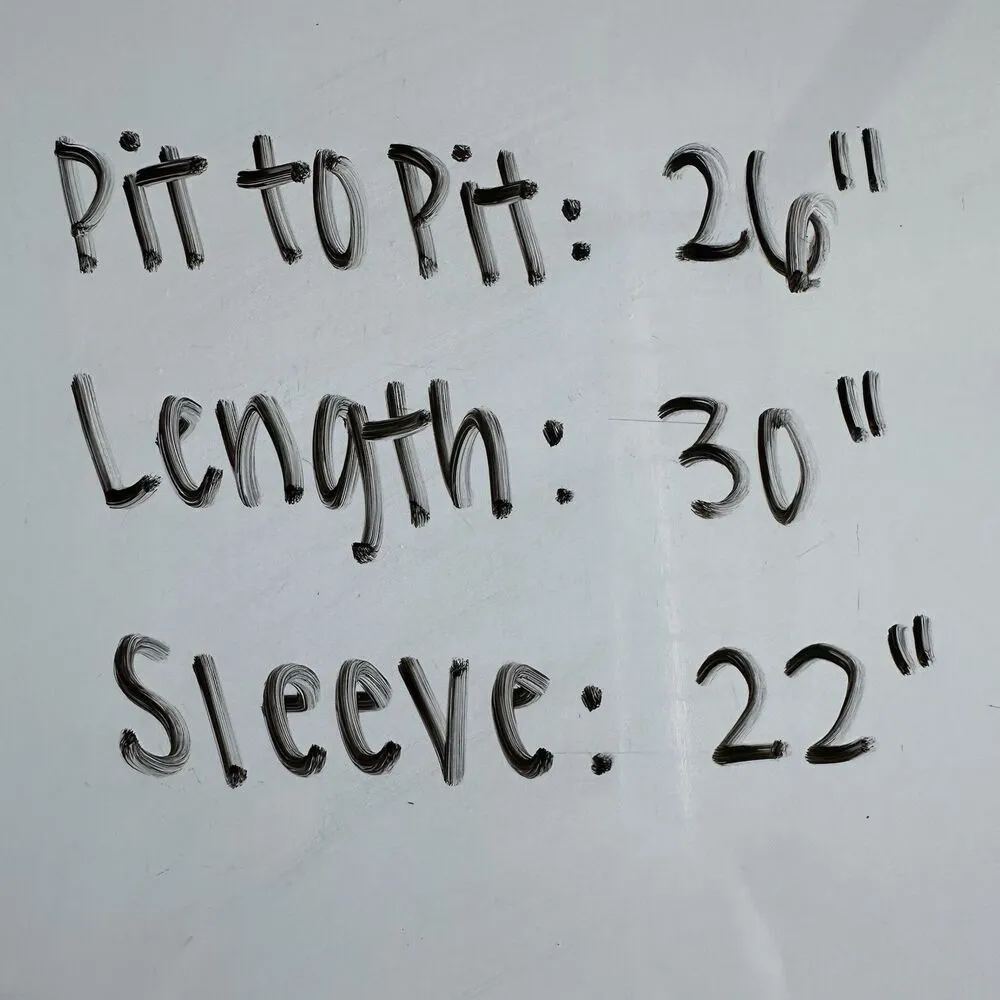 Pit to Pit: 26"
Length: 30"
Sleeve: 22"